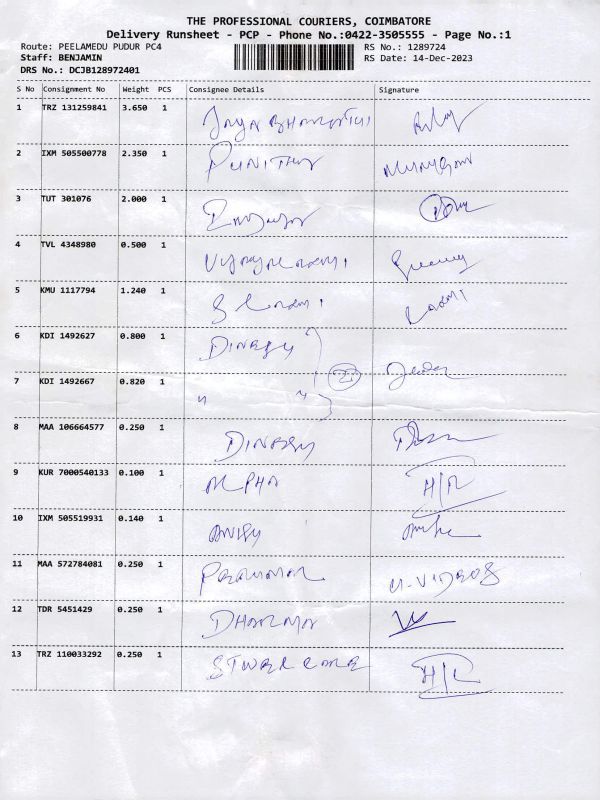 THE PROFESSIONAL COURIERS, COIMBATORE
Delivery Runsheet - PCP - Phone No.:0422-3505555 - Page No.:1
Route: PEELAMEDU PUDUR PC4 RS No.: 1289724
Staff: BENJAMIN RS Date: 14-Dec-2023
DRS No.: DCJB128972401
S No Consignment No Weight PCS Consignee Details Signature
1 TRZ 131259841 3.650 1
2 IXM 505500778 2.350 1 PUNITHA
3 TUT 301076 2.000 1
4 TVL 4348980 0.500 1
5 KMU 1117794 1.240 1
6 KDI 1492627 0.800 1 DINESH
7 KDI 1492667 0.820 1 " "
8 MAA 106664577 0.250 1 DINESH
9 KUR 7000540133 0.100 1 ALPHA H/R
10 IXM 505519931 0.140 1
11 MAA 572784081 0.250 1 PERUMAL
12 TDR 5451429 0.250 1 DHARMA
13 TRZ 110033292 0.250 1 H/R